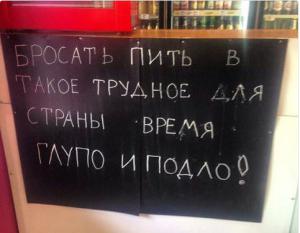 БРОСАТЬ ПИТЬ В
ТАКОЕ ТРУДНОЕ ДЛЯ
СТРАНЫ ВРЕМЯ
ГЛУПО И ПОДЛО!